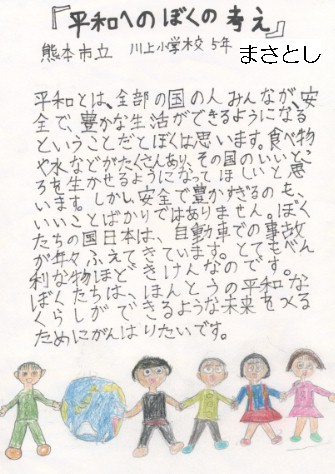 『平和へのぼくの考え』
熊本市立 川上小学校 5年 まさとし
平和とは、全部の国の人みんなが、安
全で、豊かな生活ができるようになる
ということだとぼくは思います。食べ物
や水などがたくさんあり、その国のいいとこ
ろを生かせるようになってほしいと思
います。しかし、安全で豊かすぎるのも、
いいことばかりではありません。ぼく
たちの国日本は、自動車での事故
が年々ふえてきています。とてもべん
利な物ほどきけんなのです。
ぼくたちは、ほんとうの平和な
くらしができるような未来をつくる
ためにがんばりたいです。